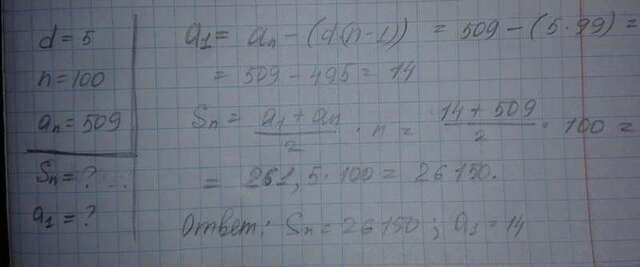 d = 5
n = 100
aₙ = 509
Sₙ = ? ...
a₁ = ?
a₁ = aₙ - (d(n-1)) = 509 - (5·99) =
= 509 - 495 = 14
Sₙ = (a₁ + aₙ)/2 · n = (14 + 509)/2 · 100 =
= 261,5·100 = 26150.
Ответ: Sₙ = 26150; a₁ = 14